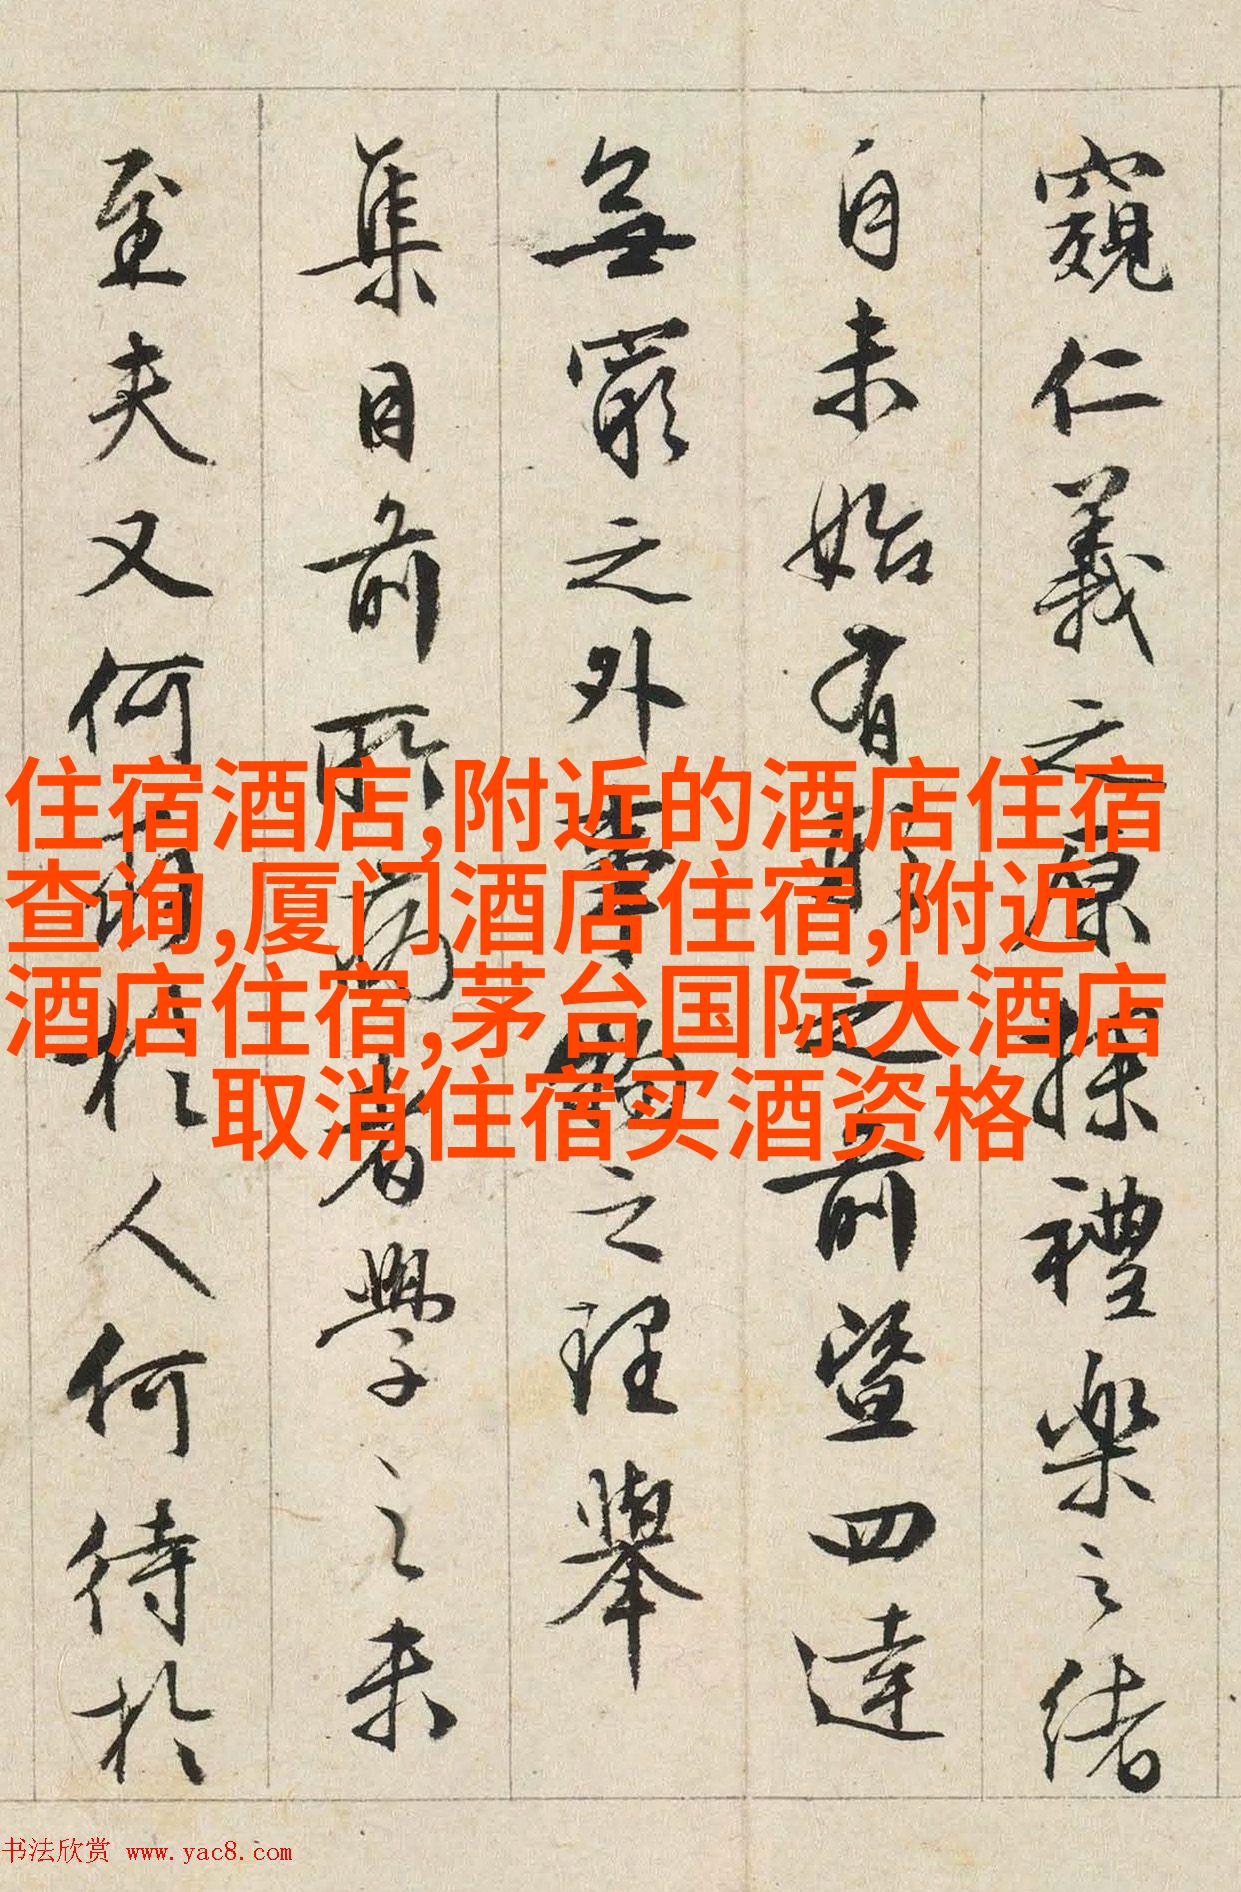 窺仁義之原探禮樂之緒
自未始有形之前暨四達
無窮之外事物之理舉
集目前所病者學之未
至夫又何病於人何待於
住宿酒店,附近的酒店住宿
查询,厦门酒店住宿,附近
酒店住宿,茅台国际大酒店
取消住宿买酒资格
书法欣赏 www.yac8.com